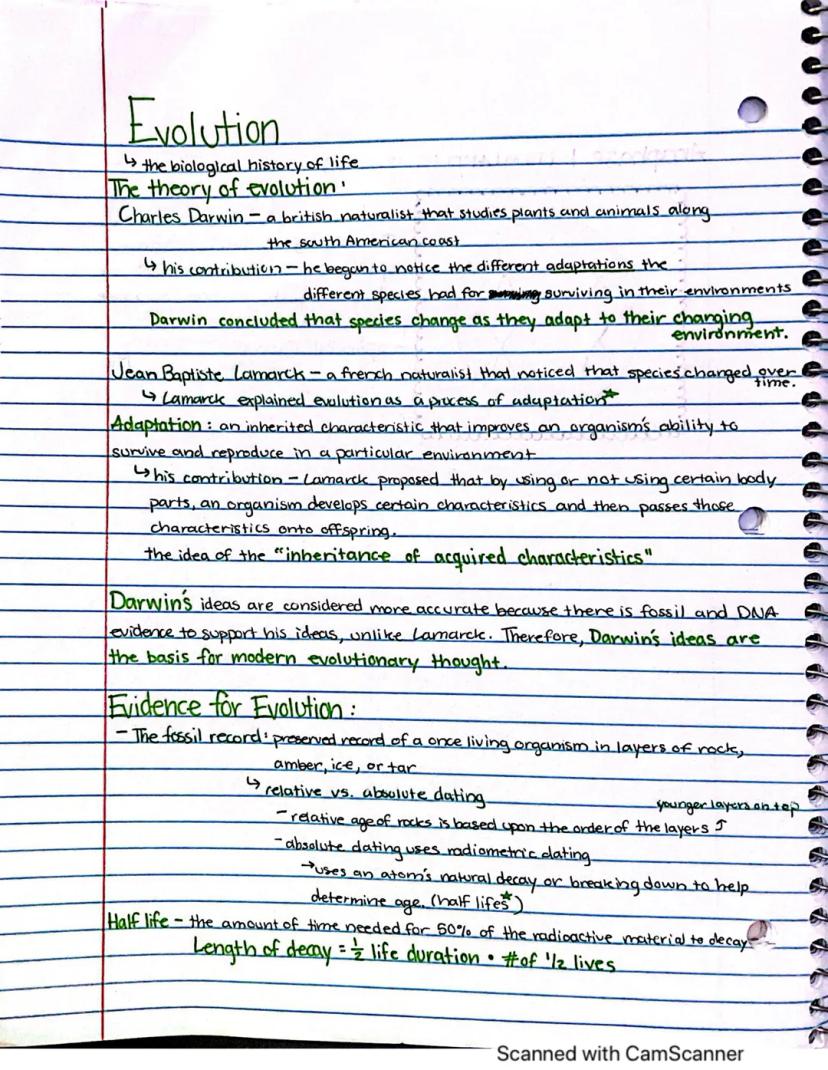 Evolution
↳ the biological history of life
The theory of evolution:
Charles Darwin – a british naturalist that studies plants and animals along
the south American coast
↳ his contribution – he began to notice the different adaptations the
different species had for surviving in their environments
Darwin concluded that species change as they adapt to their changing
environment.
Jean Baptiste Lamarck – a french naturalist that noticed that species changed over
time.
↳ Lamarck explained evolution as a process of adaptation*
Adaptation: an inherited characteristic that improves an organism's ability to
survive and reproduce in a particular environment
↳ his contribution – Lamarck proposed that by using or not using certain body
parts, an organism develops certain characteristics and then passes those
characteristics onto offspring.
the idea of the "inheritance of acquired characteristics"
Darwin's ideas are considered more accurate because there is fossil and DNA
evidence to support his ideas, unlike Lamarck. Therefore, Darwin's ideas are
the basis for modern evolutionary thought.
Evidence for Evolution:
– The fossil record: preserved record of a once living organism in layers of rock,
amber, ice, or tar
↳ relative vs. absolute dating
younger layers on top
– relative age of rocks is based upon the order of the layers ⤴
– absolute dating uses radiometric dating
→ uses an atom's natural decay or breaking down to help
determine age. (half lifes*)
Half life – the amount of time needed for 50% of the radioactive material to decay
Length of decay = ½ life duration • # of ½ lives
Scanned with CamScanner